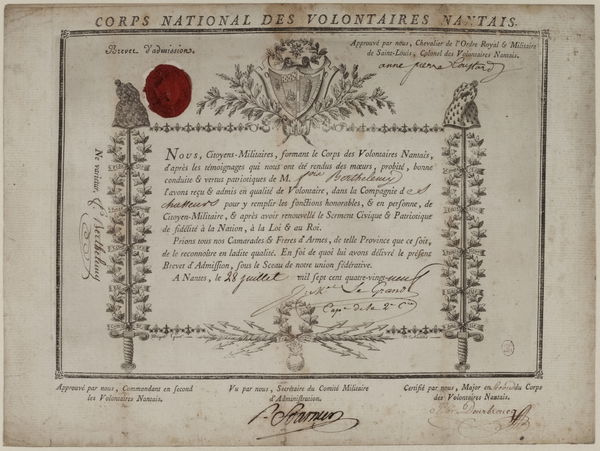 CORPS NATIONAL DES VOLONTAIRES NANTAIS.
Brevet d'admission.
Approuvé par nous, Chevalier de l'Ordre Royal & Militaire
de Saint-Louis, Colonel des Volontaires Nantais.
anne pierre Coustard
NOUS, Citoyens-Militaires, formant le Corps des Volontaires Nantais,
d'après les témoignages qui nous ont été rendus des mœurs, probité, bonne
conduite & vertus patriotiques de M. Berthelemi
l'avons reçu & admis en qualité de Volontaire, dans la Compagnie des
chasseurs pour y remplir les fonctions honorables, & en personne, de
Citoyen-Militaire, & après avoir renouvellé le Serment Civique & Patriotique
de fidélité à la Nation, à la Loi & au Roi.
Prions tous nos Camarades & Freres d'Armes, de telle Province que ce soit,
de le reconnoître en ladite qualité. En foi de quoi lui avons délivré le présent
Brevet d'Admission, sous le Sceau de notre union fédérative.
A Nantes, le 28 juillet mil sept cent quatre-vingt-neuf
Le Grand
Cap.e de la 2.e Cie
Ne varietur
Approuvé par nous, Commandant en second
les Volontaires Nantais.
Vu par nous, Secrétaire du Comité Militaire
d'Administration.
Certifié par nous, Major en du Corps
des Volontaires Nantais.